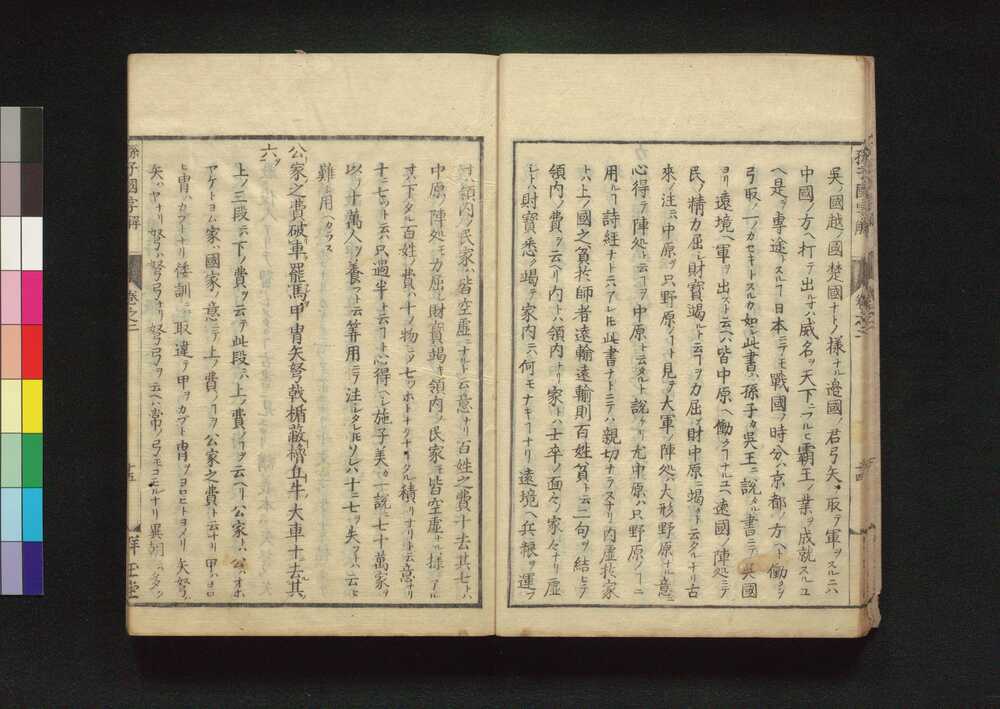 呉ノ國越ノ國楚國ナトノ様ナル邉國ノ君弓矢ヲ取テ軍ヲスルニハ
中國ノ方ヘ打テ出ルナハ威名ヲ天下ニフルヒ霸王ノ業ヲ成就スルユ
ヘ是ヲ専途トスルヿ日本ニテモ戰國ノ時分ハ京都ノ方ヘト働クヲ
弓取ノ一ツカセキトスルカ如シ此書ハ孫子カ呉王ニ説タル書ニテ呉國
ヨリ遠境ヘ軍ヲ出スト云ハ皆中原ヘ働クヿナルユヘ遠國ノ陣処ニテ
民ノ精力屈シ財寶竭ルト云フヿヲ力屈シ財中原ニ竭ルト云タルナリ古
來ノ注ニ中原ヲ只野原ノヿト見テ大軍ノ陣処ハ大形野原ナル意ト
心得テ陣処ト云ヿヲ中原ト云タルト説ケリ尤中原ハ只野原ノヿニ
用ルヿ詩經ナトニアレ𪜈此書ナトニテハ親切ナラスナリ内虚於家
トハ上ノ國之貧於師者遠輸遠輸則百姓貧ト云二句ヲ結ヒテ
領内ノ費ヲ云ヘリ内トハ領内ナリ家トハ士卒ノ面々ノ家々ナリ虚
シトハ財寶悉ク竭テ家内ニハ何モナキヿナリ遠境ヘ兵粮ヲ運フ
其領内ノ民家ハ皆空虚ニナルト云意ナリ百姓之費十去其七トハ
中原ノ陣処モ力屈シ財寶竭キ領内ノ民家モ皆空虚ナル様ニアル
其下タル百姓ノ費ハ十ノ物ニテ七ツホトナクナル積リナリト云意ナリ
十ニ七ツト云ハ只過半ト云フヿト心得ヘシ施子美カ一説ニ七十萬家ヲ
以テ十萬人ヲ養フト云筭用ニテ注シタレ𪜈ソレハ十ニ七ヲ失フトハ云ヒ
難シ用ヘカラス
公家之費破車罷馬甲冑矢弩戟楯蔽櫓丘牛大車十去其
六
上ノ三段ニ下ノ費ヲ云テ此段ニハ上ノ費ノヿヲ云ヘリ公家トハ公ハオホ
ヤケトヨム家ハ國家ノ意ニテ上ノ費ノヿヲ公家之費ト云ナリ甲ハヨロ
ヒ冑ハカブトナリ倭訓ニハ取違テ甲ヲカブト冑ヲヨロヒトヨメリ矢弩ハ
矢ハヤナリ弩ハ弩弓ナリ弩弓ヲ云ヘハ常ノ弓モコモルナリ異朝ニハタメシ
孫子國字解
卷之二
十四
孫子國字解
卷之二
十五